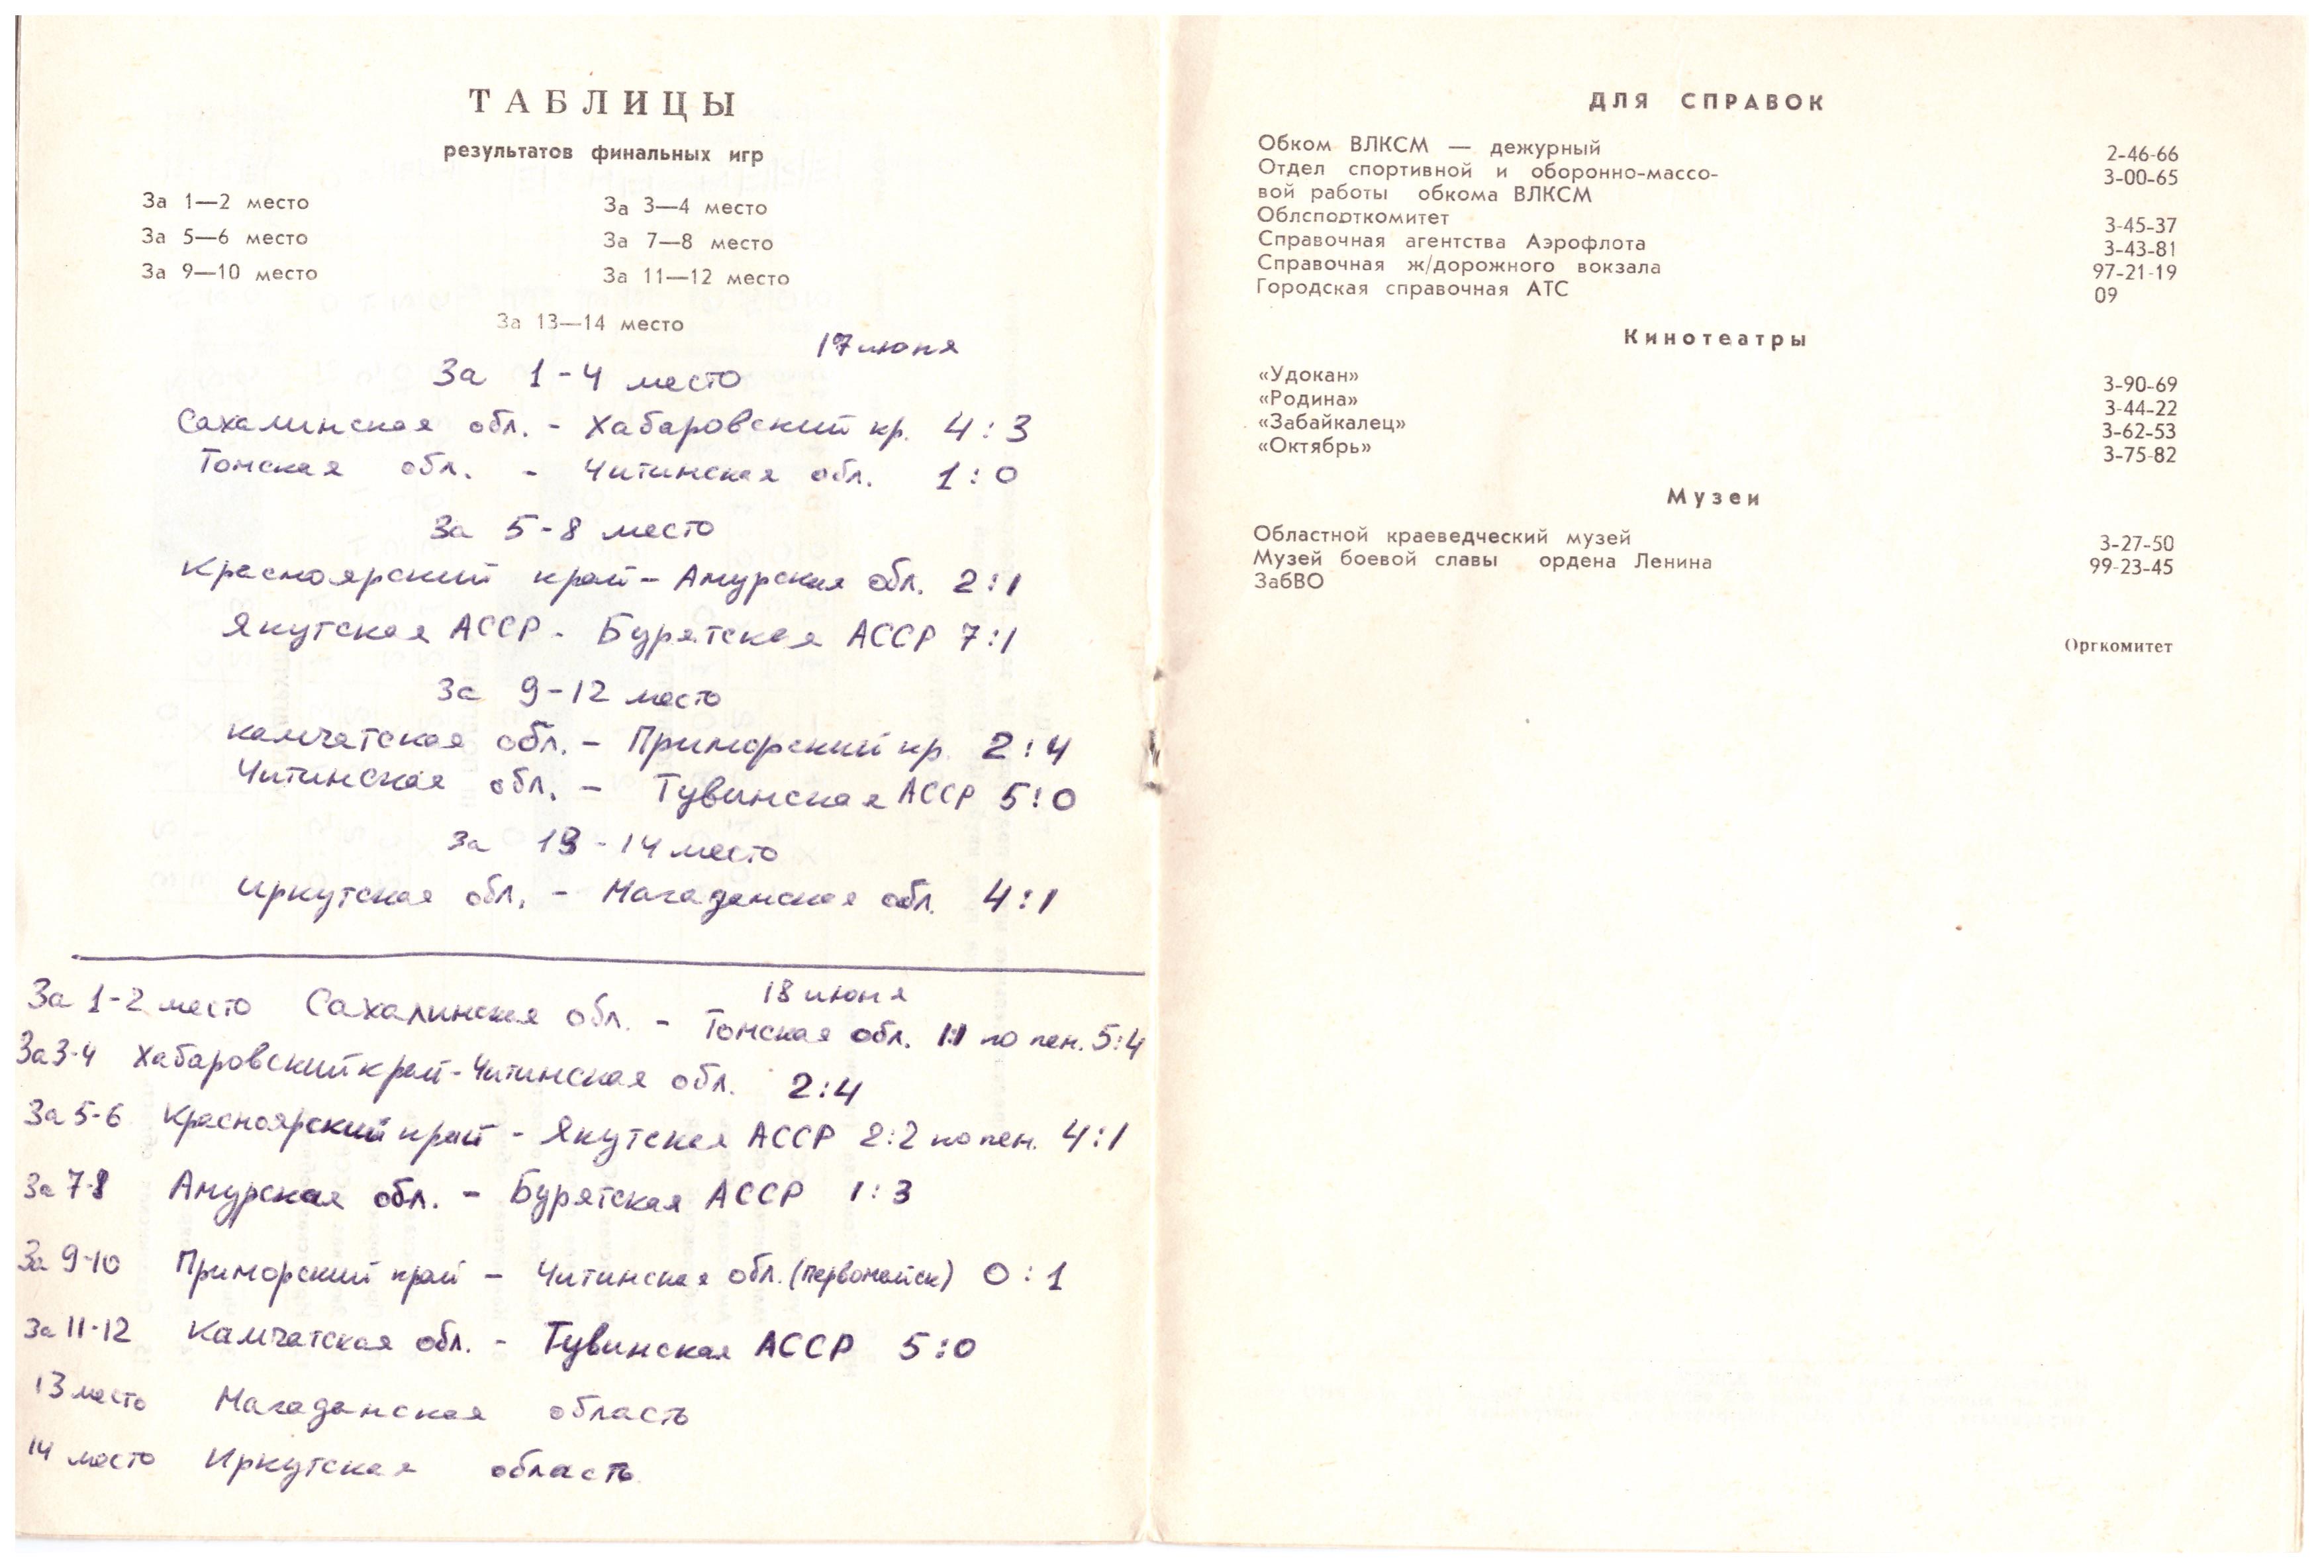 ТАБЛИЦЫ
результатов финальных игр
За 1—2 место За 3—4 место
За 5—6 место За 7—8 место
За 9—10 место За 11—12 место
За 13—14 место
17 июня
За 1-4 место
Сахалинская обл. - Хабаровский кр. 4:3
Томская обл. - Читинская обл. 1:0
За 5-8 место
Красноярский край - Амурская обл. 2:1
Якутская АССР - Бурятская АССР 7:1
За 9-12 место
Камчатская обл. - Приморский кр. 2:4
Читинская обл. - Тувинская АССР 5:0
За 13-14 место
Иркутская обл. - Магаданская обл. 4:1
18 июня
За 1-2 место Сахалинская обл. - Томская обл. 1:1 по пен. 5:4
За 3-4 Хабаровский край - Читинская обл. 2:4
За 5-6 Красноярский край - Якутская АССР 2:2 по пен. 4:1
За 7-8 Амурская обл. - Бурятская АССР 1:3
За 9-10 Приморский край - Читинская обл. (Первомайск) 0:1
За 11-12 Камчатская обл. - Тувинская АССР 5:0
13 место Магаданская область
14 место Иркутская область
ДЛЯ СПРАВОК
Обком ВЛКСМ — дежурный 2-46-66
Отдел спортивной и оборонно-массо- 3-00-65
вой работы обкома ВЛКСМ
Облспорткомитет 3-45-37
Справочная агентства Аэрофлота 3-43-81
Справочная ж/дорожного вокзала 97-21-19
Городская справочная АТС 09
Кинотеатры
«Удокан» 3-90-69
«Родина» 3-44-22
«Забайкалец» 3-62-53
«Октябрь» 3-75-82
Музеи
Областной краеведческий музей 3-27-50
Музей боевой славы ордена Ленина 99-23-45
ЗабВО
Оргкомитет